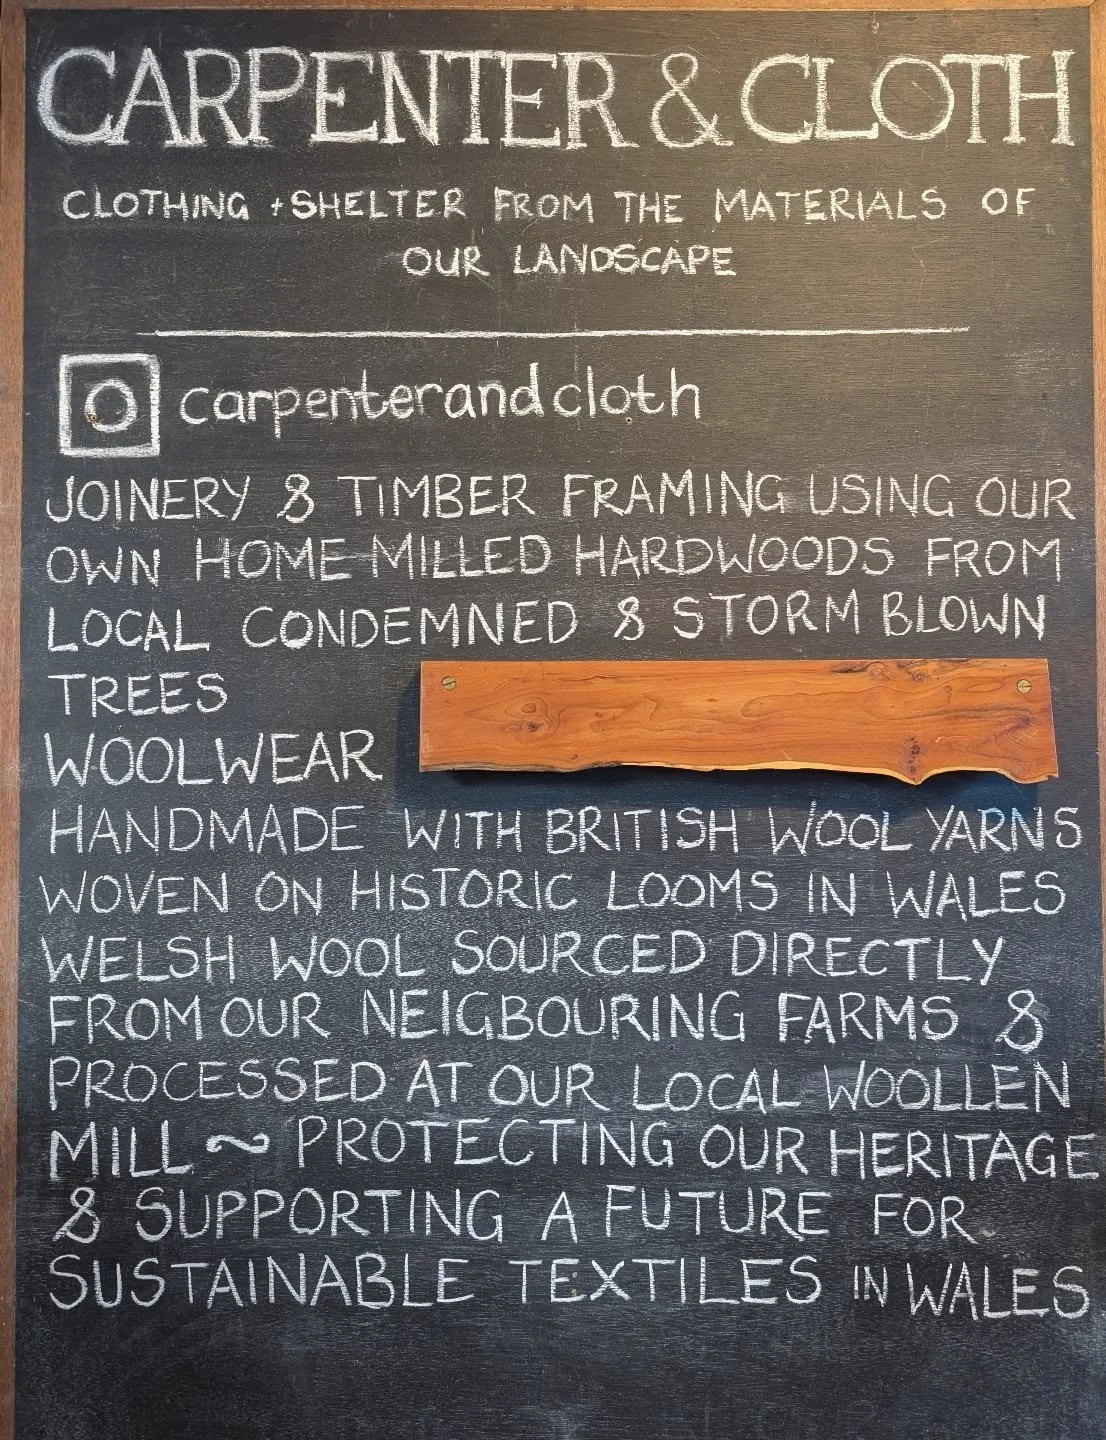 CARPENTER & CLOTH
CLOTHING + SHELTER FROM THE MATERIALS OF
OUR LANDSCAPE
carpenterandcloth
JOINERY & TIMBER FRAMING USING OUR
OWN HOME-MILLED HARDWOODS FROM
LOCAL CONDEMNED & STORM BLOWN
TREES
WOOLWEAR
HANDMADE WITH BRITISH WOOL YARNS
WOVEN ON HISTORIC LOOMS IN WALES
WELSH WOOL SOURCED DIRECTLY
FROM OUR NEIGBOURING FARMS &
PROCESSED AT OUR LOCAL WOOLLEN
MILL ~ PROTECTING OUR HERITAGE
& SUPPORTING A FUTURE FOR
SUSTAINABLE TEXTILES IN WALES